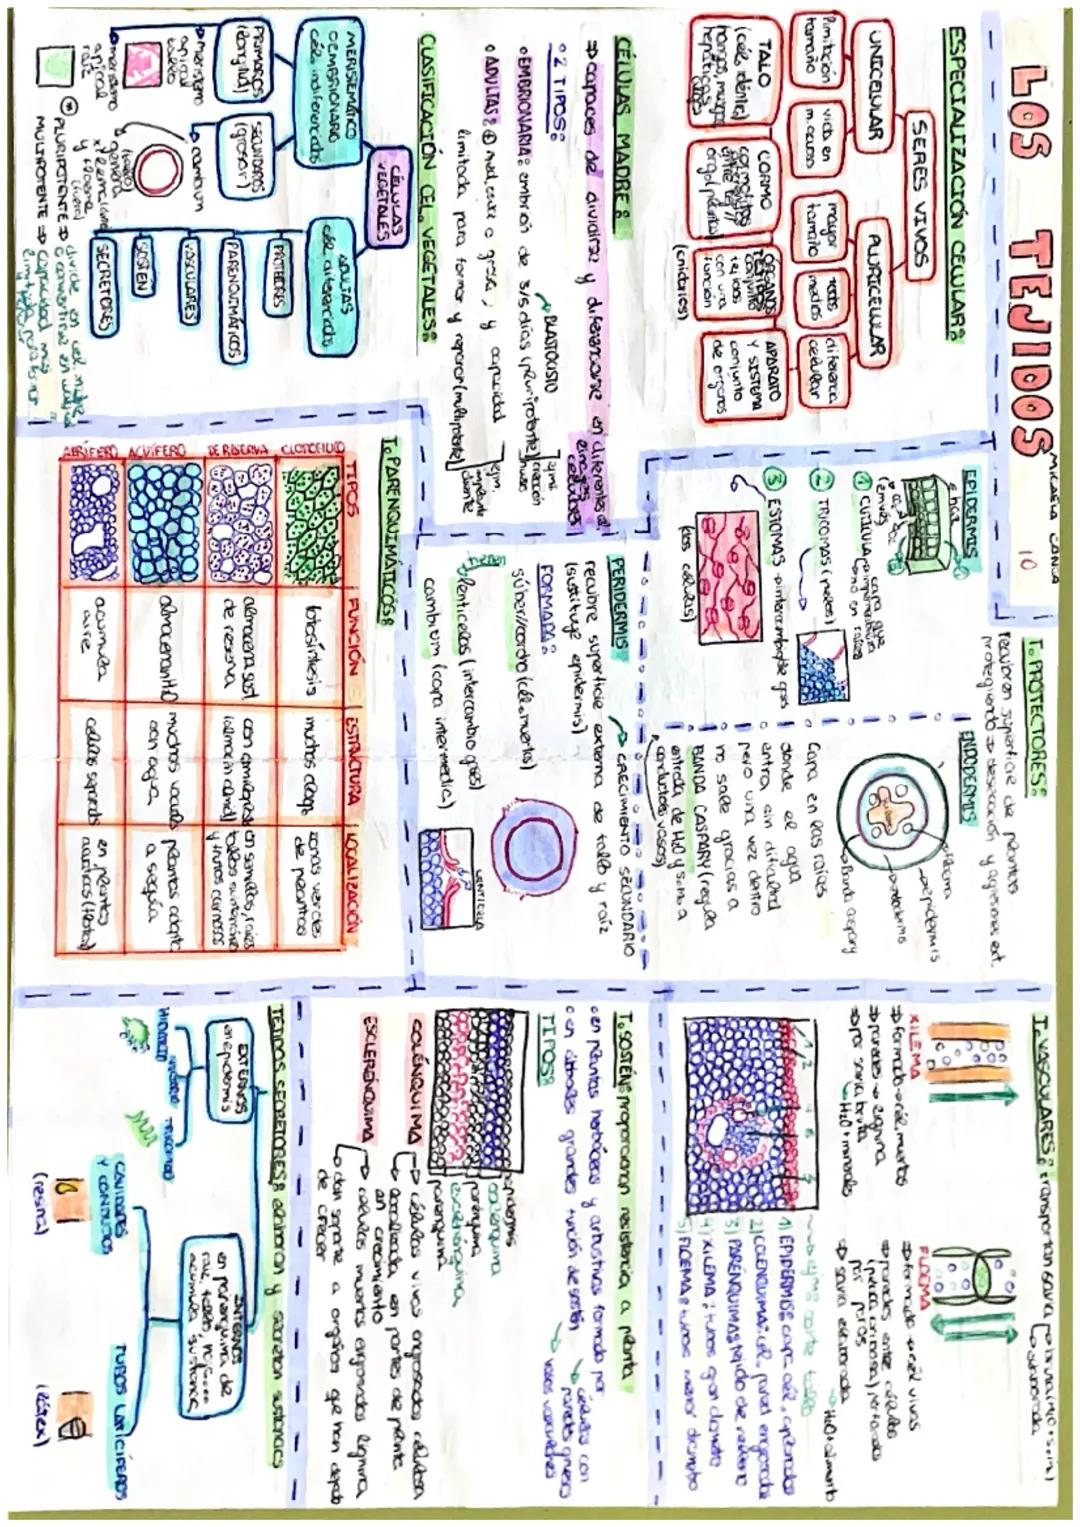 LOS TEJIDOS
10
ESPECIALIZACIÓN CELULAR:
SERES VIVOS
UNICELULAR
PLURICELULAR
limitación tamaño
vida en m. acuoso
mayor tamaño
todos medios
diferencia celular
TALO
(cél. idénticas)
hongos, musgos,
hepáticas
CORMO
ÓRGANO
conjunto
tejidos
con una
función
(cnidarios)
APARATO
Y SISTEMA
conjunto
de órganos
CÉLULAS MADRE:
⇒ capaces de dividirse y diferenciarse en diferentes
células
o 2 TIPOS:
→ BLASTOCISTO
o EMBRIONARIA: embrión de 3/5 días (pluripotente)
o ADULTAS: médula ósea o grasa, y capacidad
limitada para formar y reparar (multipotente)
CLASIFICACIÓN CEL. VEGETALES:
CÉLULAS
VEGETALES
MERISTEMÁTICO
O EMBRIONARIO
cél. indiferenciada
ADULTAS
cél. diferenciada
PRIMARIOS
(longitud)
SECUNDARIOS
(grosor)
→ meristemo
apical
tallo
→ meristemo
apical
raíz
→ cambium
PROTECTORES
PARENQUIMÁTICOS
VASCULARES
SOSTÉN
SECRETORES
PLURIPOTENTE ⇒ divide en cél. madre
o convertirse en
MULTIPOTENTE ⇒ capacidad más
limitada para formar
T. PROTECTORES:
recubren superficie de plantas
protegiendo ⇒ desecación y agresiones ext.
EPIDERMIS
1 CUTÍCULA
2 TRICOMAS (pelos)
3 ESTOMAS → intercambio de gas
(dos células)
ENDODERMIS
→ epidermis
→ banda caspary
Capa en las raíces
donde el agua
entra sin dificultad
pero una vez dentro
no sale gracias a
BANDA CASPARY (regula
entrada de H2O y sales a
conductos vasos)
PERIDERMIS
→ CRECIMIENTO SECUNDARIO
recubre superficie externa de tallo y raíz
(sustituye epidermis)
FORMADA:
súber//corcho (cél. muertas)
lenticelas (intercambio gases)
cambium (capa intermedia)
LENTICELA
T. PARENQUIMÁTICOS:
TIPOS
FUNCIÓN
ESTRUCTURA
LOCALIZACIÓN
CLOROFÍLICO
fotosíntesis
muchos clorop
zonas verdes
de plantas
DE RESERVA
almacena sust.
de reserva
con amiloplastos
(almacén almid)
en semillas, raíces
tallos subterráneos
y frutos carnosos
ACUÍFERO
almacenan H2O
muchos vacuolas
con agua
plantas adapta
a sequía
AERÍFERO
acumula
aire
células separadas
en plantas
acuáticas
T. VASCULARES: transportan savia
XILEMA
⇒ formado → cél. muertas
⇒ paredes → lignina
⇒ por savia bruta
→ H2O + minerales
FLOEMA
⇒ formado → cél vivas
⇒ paredes entre células
(placa cribosa) perforadas
por poros
⇒ savia elaborada
→ H2O + alimento
1) EPIDERMIS:
2) COLÉNQUIMA:
3) PARÉNQUIMAS: tejido de relleno
4) XILEMA: tubos gran diámetro
5) FLOEMA: tubos menor diámetro
T. SOSTÉN: proporcionan resistencia a planta
o en plantas herbáceas y arbustivas formado por
→ células con
paredes gruesas
o en árboles grandes función de sostén
→ vasos conductores
TIPOS:
epidermis
colénquima
parénquima
esclerénquima
parénquima
COLÉNQUIMA
→ células vivas engrosadas celulosa
→ localizada en partes de planta
en crecimiento
ESCLERÉNQUIMA
→ células muertas engrosadas lignina
→ dan soporte a órganos que han dejado
de crecer
TEJIDOS SECRETORES: elaboran y secretan sustancias
EXTERNOS
en epidermis
INTERNOS
en parénquima de
raíz, tallo, hojas
acumula sustancias
TRICOMAS
CAVIDADES
Y CONDUCTOS
(resina)
TUBOS LATICÍFEROS
(látex)